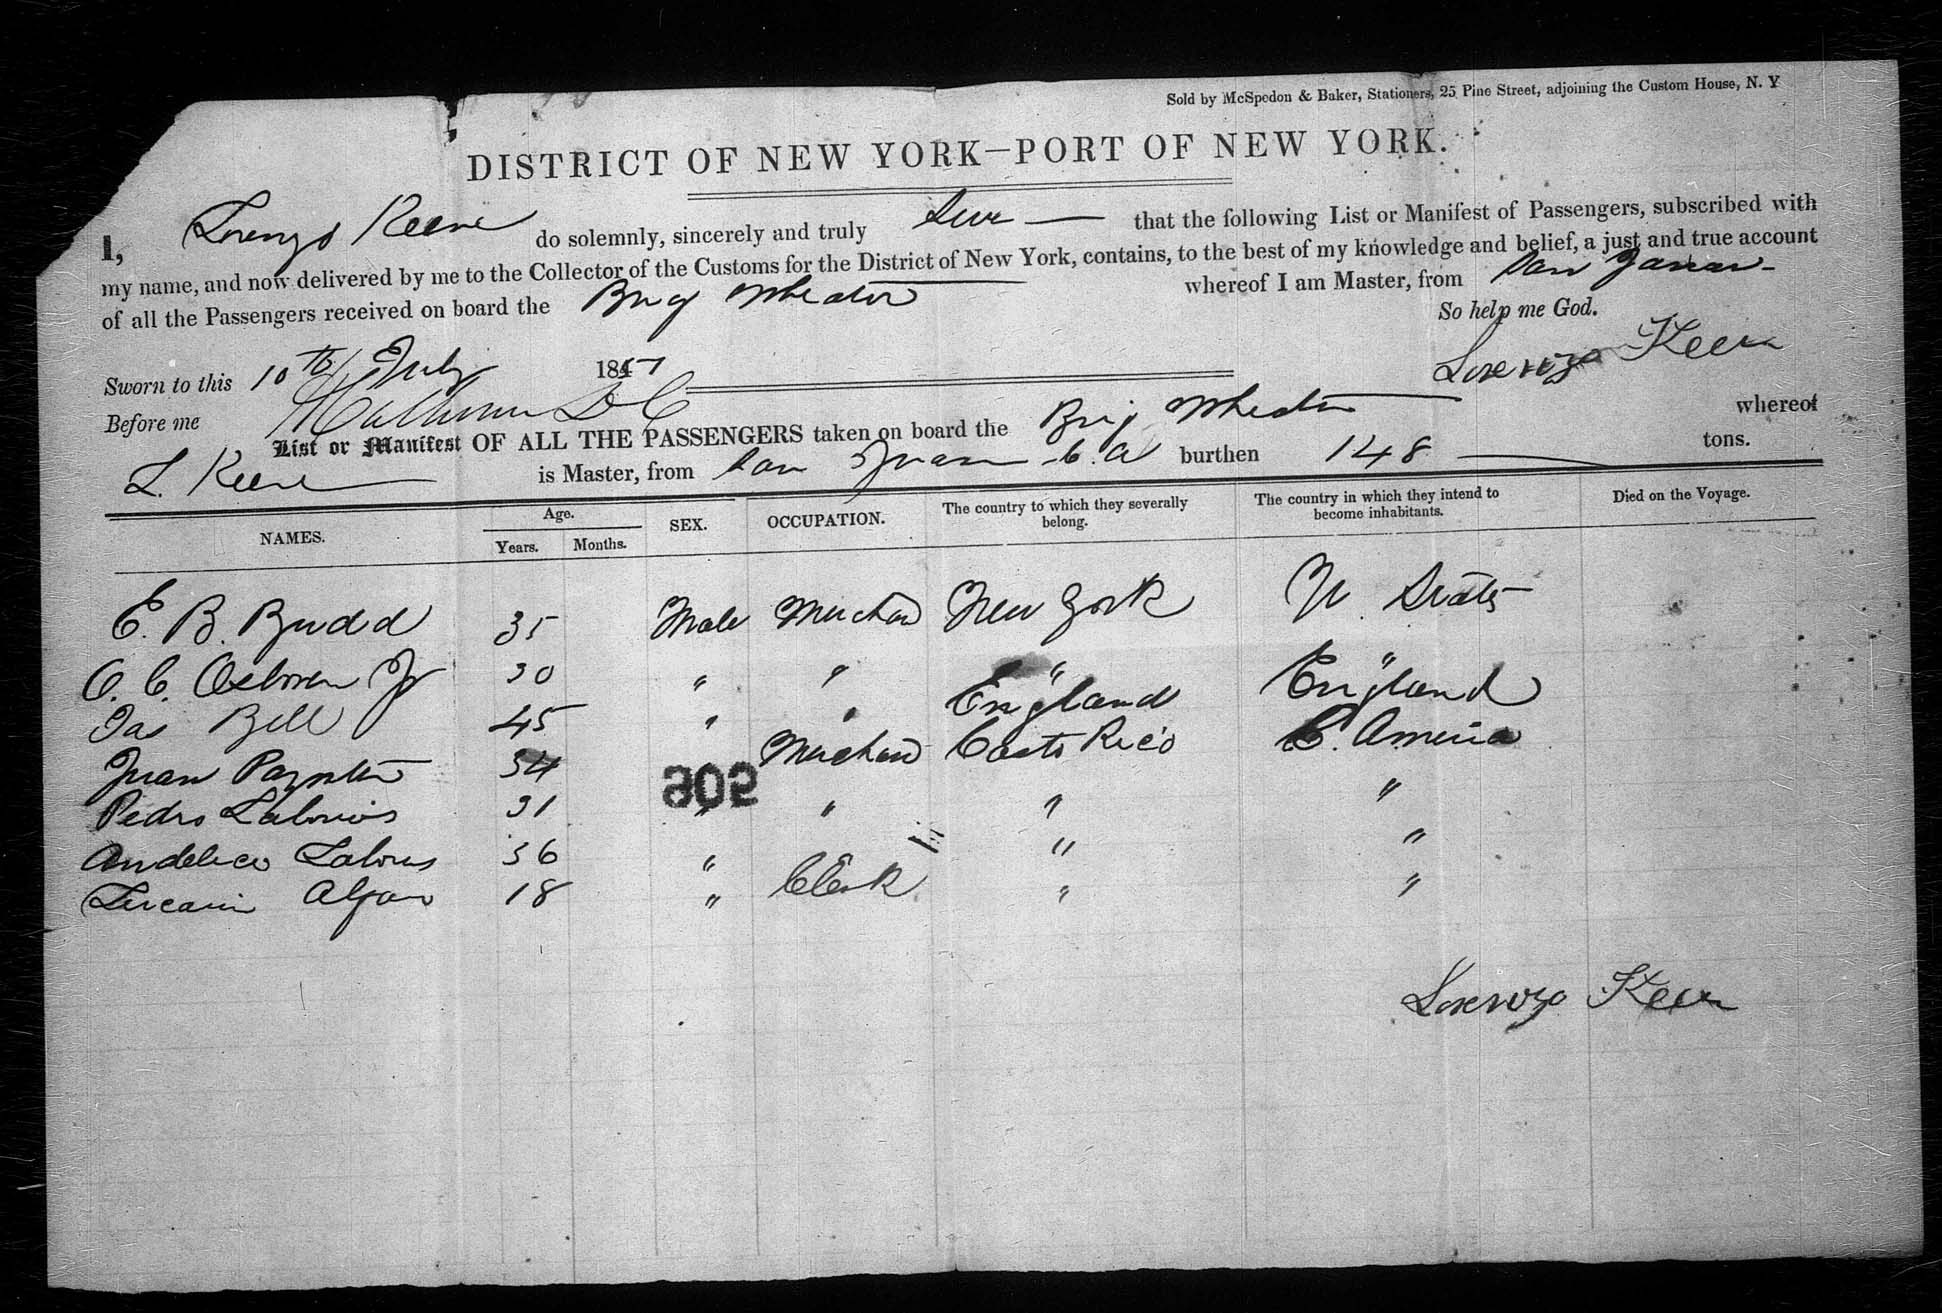 Sold by McSpedon & Baker, Stationers, 25 Pine Street, adjoining the Custom House, N. Y
DISTRICT OF NEW YORK—PORT OF NEW YORK.
I, Lorenzo Keene do solemnly, sincerely and truly Swr — that the following List or Manifest of Passengers, subscribed with
my name, and now delivered by me to the Collector of the Customs for the District of New York, contains, to the best of my knowledge and belief, a just and true account
of all the Passengers received on board the Brig Wheaton whereof I am Master, from San Juan
So help me God.
Sworn to this 10th July 1847 Lorenzo Keen
Before me D C
List or Manifest OF ALL THE PASSENGERS taken on board the Brig Wheaton whereof
L. Keene is Master, from San Juan C. A burthen 148 tons.
NAMES. Age. Years. Months. SEX. OCCUPATION. The country to which they severally belong. The country in which they intend to become inhabitants. Died on the Voyage.
E. B. Budd 35 Male Merchan New York U. States
O. C. Osborn Jr 30 " " " "
Jas Bell 45 " " England England
Juan Paynter 34 Merchan Costo Rico C. America
Pedro 31 " " " "
36 " " "
Alfaro 18 " Clerk " "
205
Lorenzo Keen